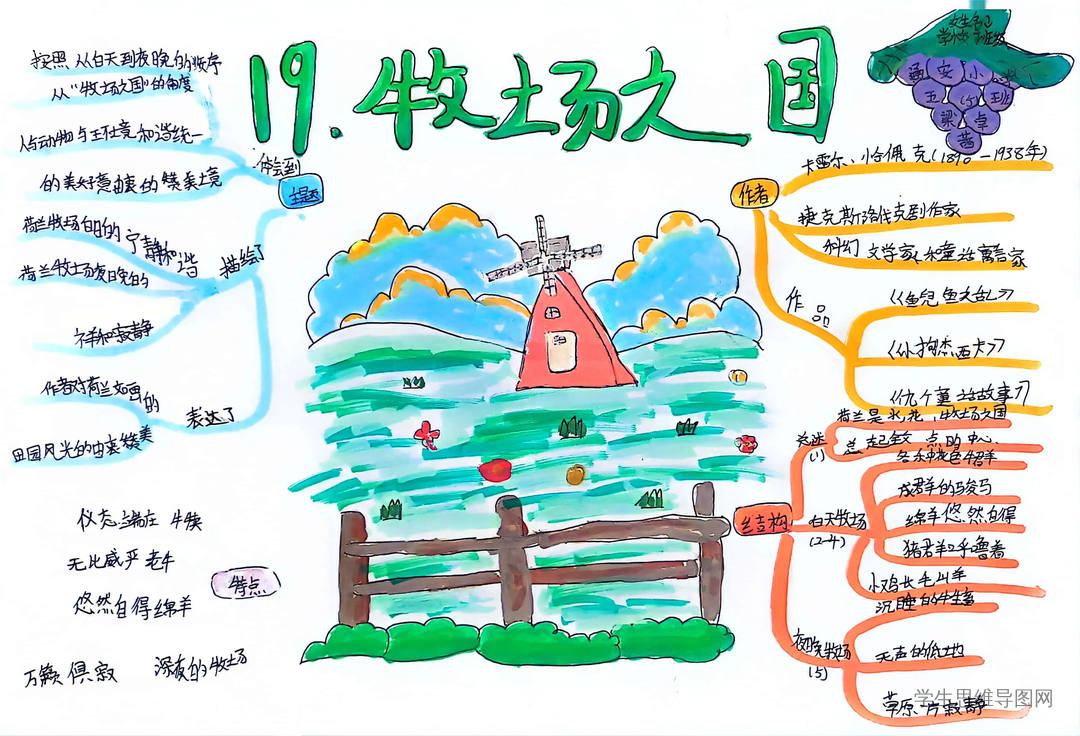 19.牧场之国
姓生名卫
学小如班级
通安小学
五(5)班
梁卓
茜
主题
体会到
按照从白天到夜晚的顺序
从“牧场之国”的角度
人与动物与王不土竟和谐统一
的美好意由衷的赞美之境
描绘了
荷兰牧场白日的宁静和谐
荷兰牧场夜晚的
祥和寂静
表达了
作者对荷兰如画的
田园风光的由衷赞美
特点
仪态端庄 牛犊
无比威严 老牛
悠然自得绵羊
万籁俱寂 深夜的牧场
作者
卡雷尔、恰佩克(1890-1938年)
捷克斯洛伐克剧作家
科幻文学家、童话寓言家
作品
《鲵鱼之乱》
《小狗杰西卡》
《九个童话故事》
结构
总述
(1)
荷兰是水、花、牧场之国
总起全文,点明中心
白天牧场
(2-4)
各东花色牛羊
成群的骏马
绵羊悠然自得
猪群呼噜着
小鸡长毛山羊
夜晚牧场
(5)
沉睡的牲畜
无声的低地
草原一片寂静
学生思维导图网